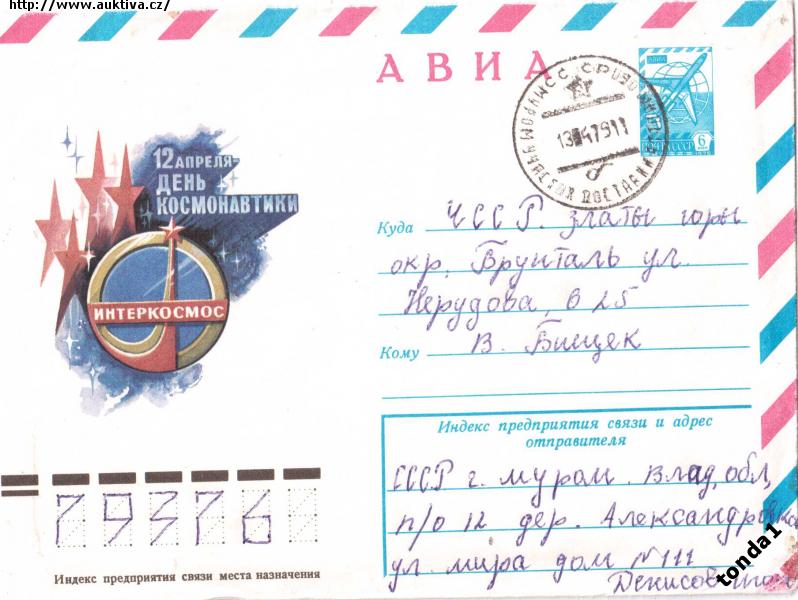 http://www.auktiva.cz/
АВИА
12 АПРЕЛЯ-
ДЕНЬ
КОСМОНАВТИКИ
ИНТЕРКОСМОС
ПОЧТА СССР
6
Куда ЧССР. златы горы
окр. Брунталь ул.
Нерудова, 625
Кому В. Бищек
Индекс предприятия связи и адрес
отправителя
СССР г. муром. Влад. обл,
п/о 12 дер. Александровка
ул. мира дом № 111
79376
Индекс предприятия связи места назначения
tonda1